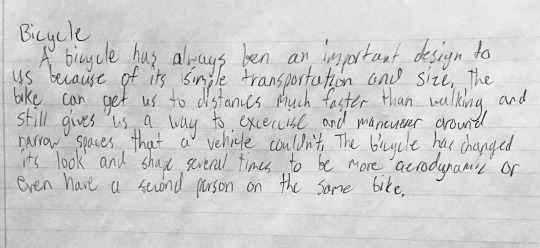 Bicycle
A bicycle has always ben an important design to
us because of its simple transportation and size. The
bike can get us to distances much faster than walking and
still gives us a way to excercise and maneuver around
narrow spaces that a vehicle couldn't. The bicycle has changed
its look and shape several times to be more aerodynamic or
even have a second person on the same bike.